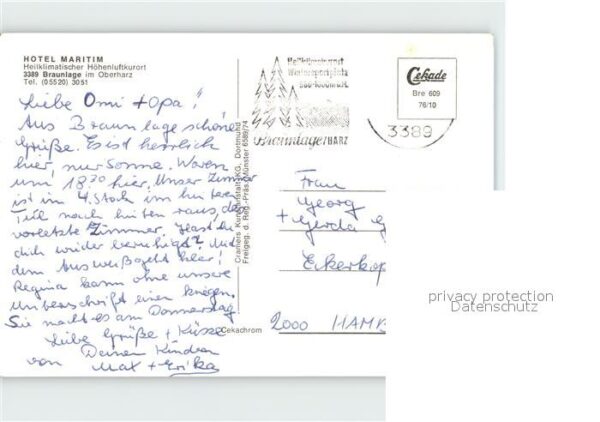 HOTEL MARITIM
Heilklimatischer Höhenluftkurort
3389 Braunlage im Oberharz
Tel. (05520) 3051
Liebe Omi + Opa!
Aus Braunlage schöne
Grüße. Es ist herrlich
hier, nur Sonne. Waren
um 18.30 hier, Unser Zimmer
ist im 4. Stock im hinteren
Teil nach hinten raus, das
vorletzte Zimmer. Hast du
dich wieder beruhigt? Mit
dem Ausweis geht klar!
Regina kann ohne unsere
Unterschrift einen kriegen.
Sie macht es am Donnerstag
Liebe Grüße + Küsse
von Deinen Kindern
Max + Erika
Cramers Kunstanstalt KG, Dortmund
Freigeg. d. Reg.-Präs. Münster 6589/74
Cekachrom
Heilklimat. und
Wintersportplatz
Braunlage/HARZ
Cekade
Bre 609
76/10
3389
Frau
Georg
+ Gerda
Eckerkop
2000 HAMB
privacy protection
Datenschutz